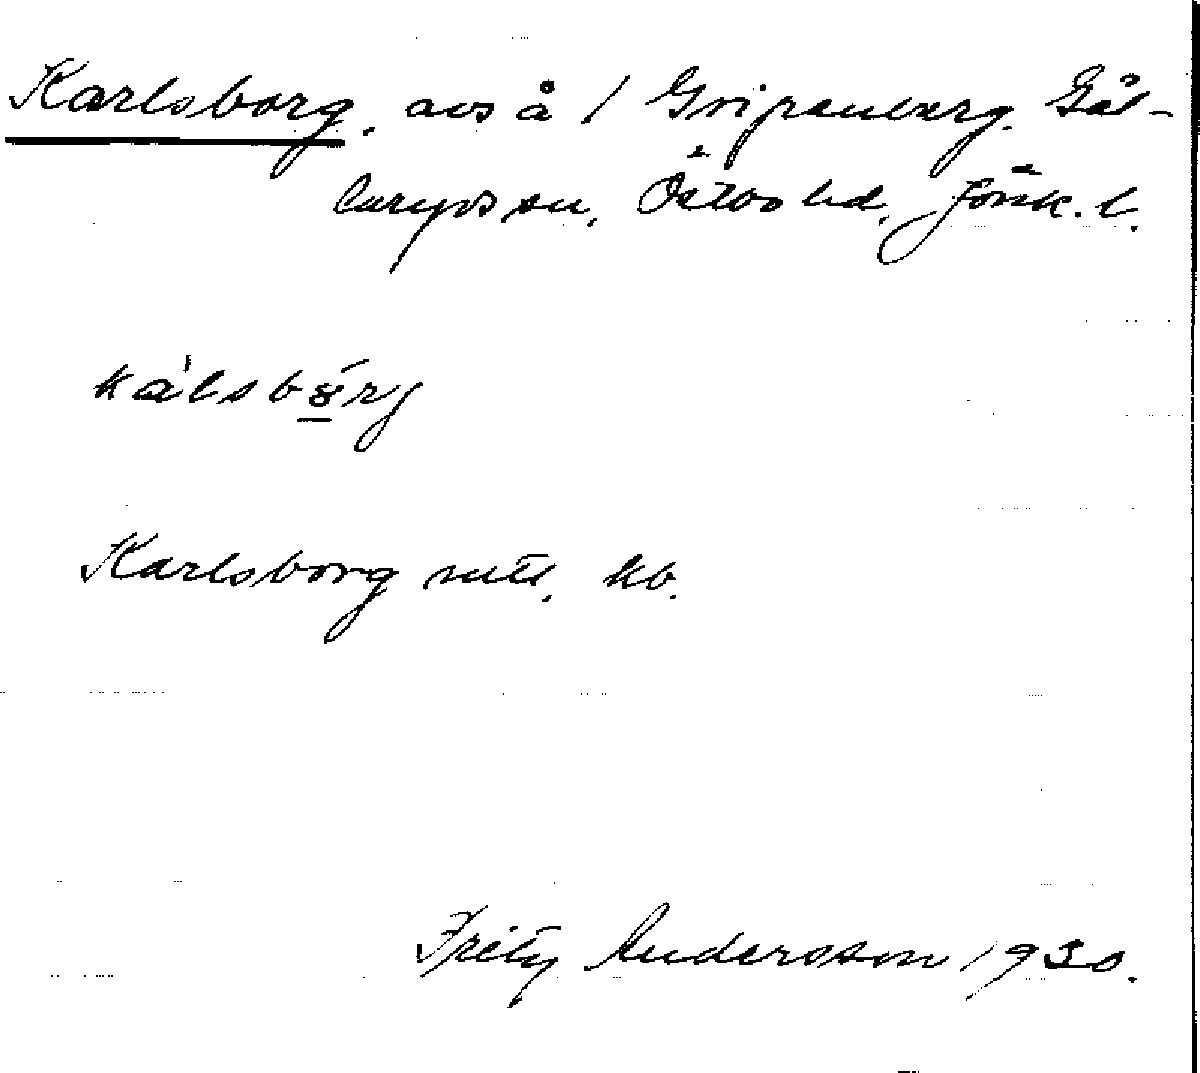 Karlsborg, avs å 1 Gripenberg, Säl-
laryds sn, Östbo hd, Jönk. l.
kálsbo̲rg
Karlsborg mtl. kb.
Fritz Andersson 1930.